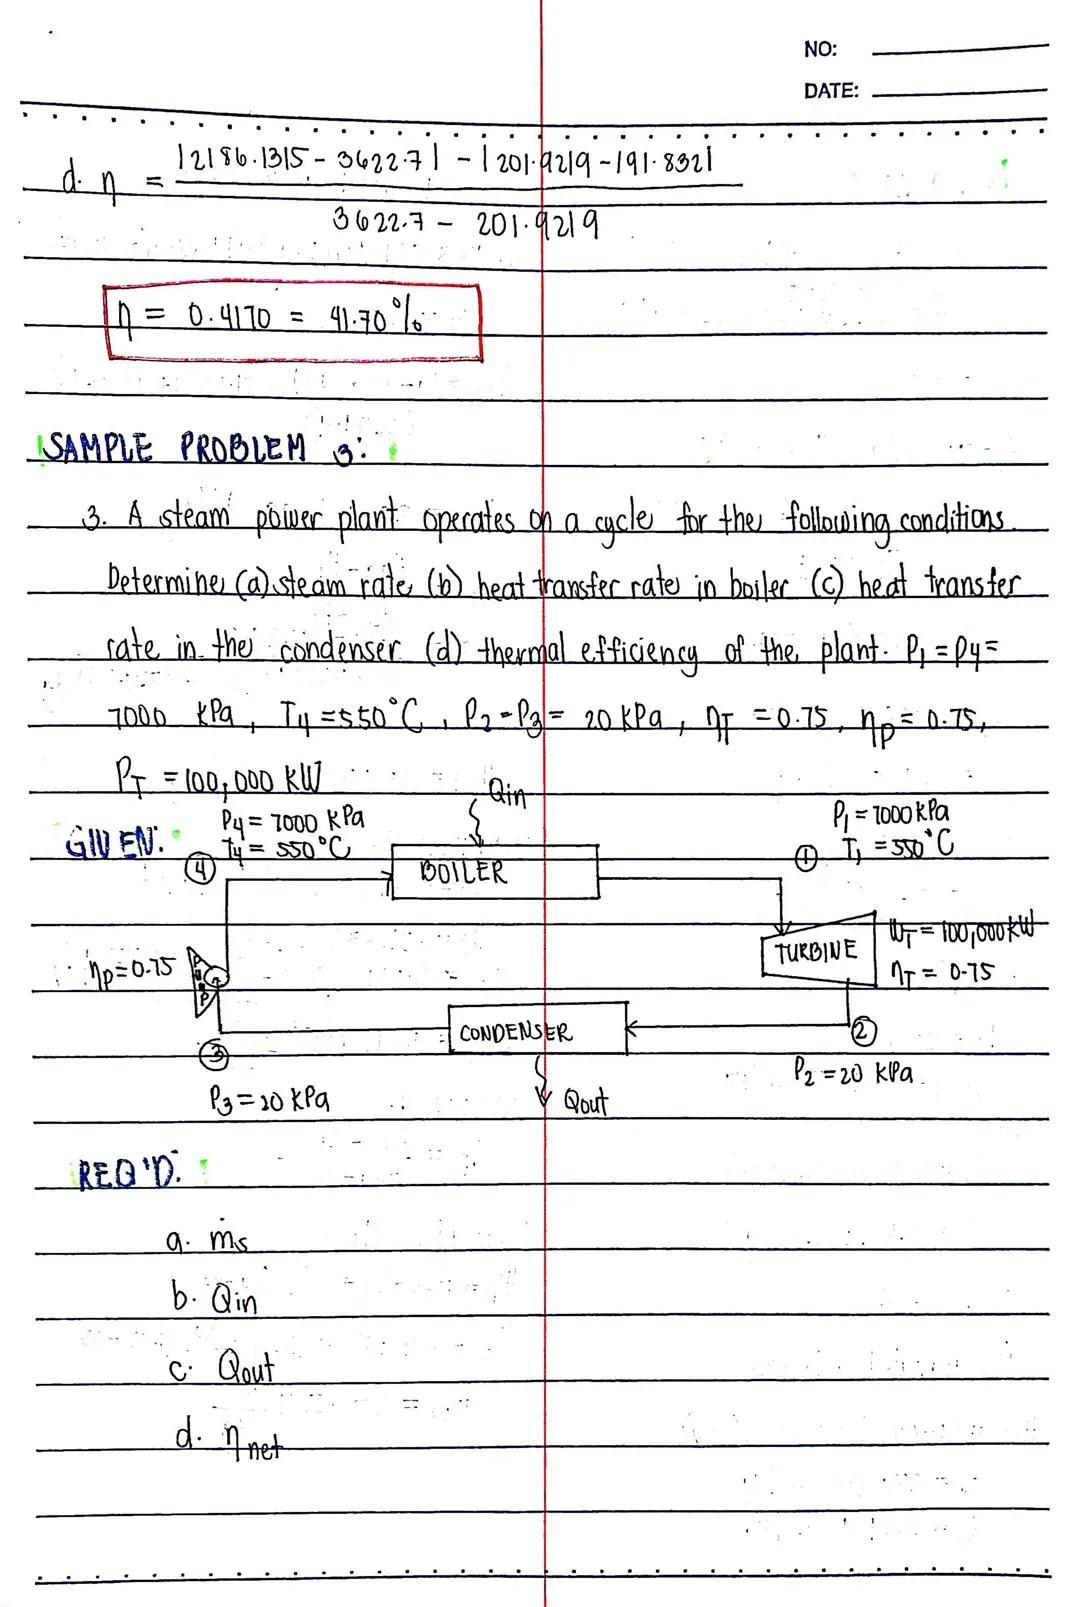 NO:
DATE:
d. η = |2186.1315 - 3622.7| - |201.9219 - 191.832|
3622.7 - 201.9219
η = 0.4170 = 41.70%
SAMPLE PROBLEM 3:
3. A steam power plant operates on a cycle for the following conditions.
Determine (a) steam rate (b) heat transfer rate in boiler (c) heat transfer
rate in the condenser (d) thermal efficiency of the plant. P₁ = P4 =
7000 kPa, T4 = 550°C, P₂ = P₃ = 20 kPa, ηT = 0.75, ηp = 0.75,
PT = 100,000 kW
GIVEN:
P4 = 7000 kPa
T4 = 550°C
④
Qin
BOILER
P₁ = 7000 kPa
① T₁ = 550°C
TURBINE
WT = 100,000 kW
ηT = 0.75
ηp = 0.75
PUMP
CONDENSER
②
③
P₂ = 20 kPa
P₃ = 20 kPa
Qout
REQ'D:
a. ṁs
b. Qin
c. Qout
d. η net